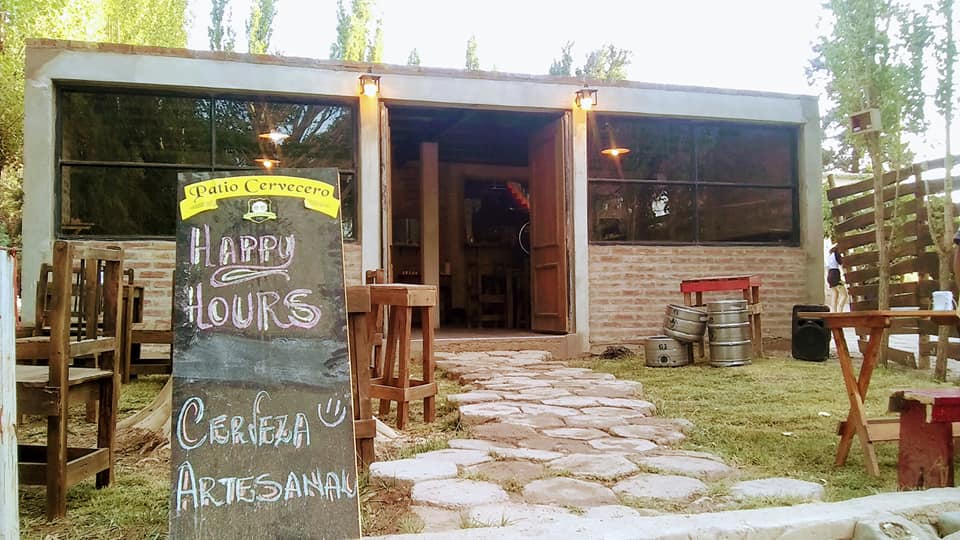 Patio Cervecero
HAPPY
HOURS
CERVEZA
ARTESANAL